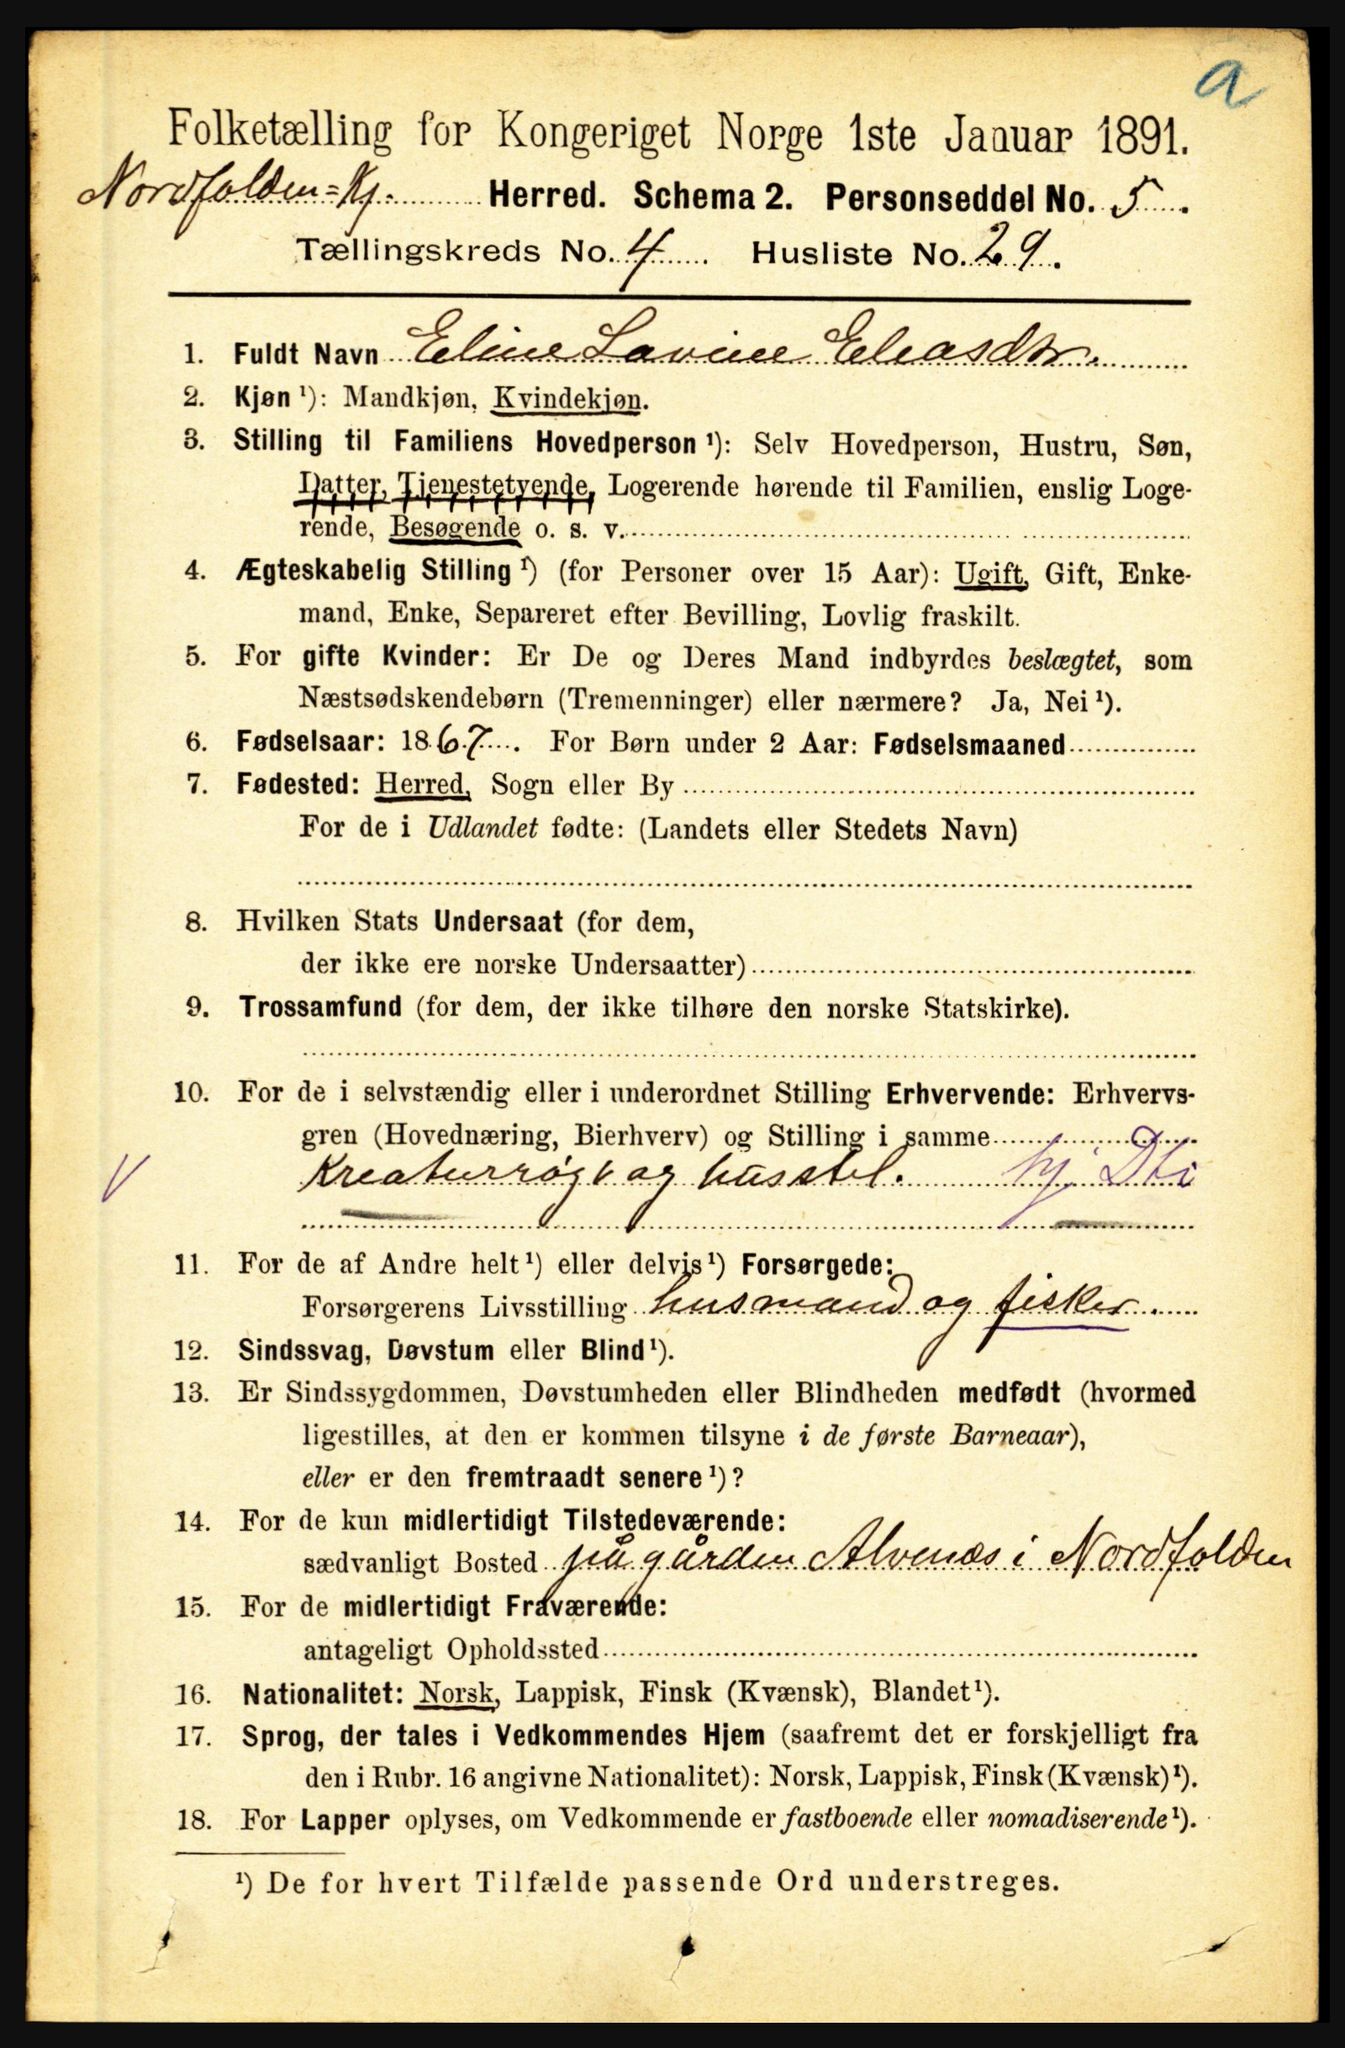 a
Folketælling for Kongeriget Norge 1ste Januar 1891.
Nordfolden=Kj. Herred. Schema 2. Personseddel No. 5.
Tællingskreds No. 4 Husliste No. 29.
1. Fuldt Navn Eline Lavine Eleasdtr.
2. Kjøn ¹): Mandkjøn, Kvindekjøn.
3. Stilling til Familiens Hovedperson ¹): Selv Hovedperson, Hustru, Søn,
Datter, Tjenestetyende, Logerende hørende til Familien, enslig Loge-
rende, Besøgende o. s. v.
4. Ægteskabelig Stilling ¹) (for Personer over 15 Aar): Ugift, Gift, Enke-
mand, Enke, Separeret efter Bevilling, Lovlig fraskilt.
5. For gifte Kvinder: Er De og Deres Mand indbyrdes beslægtet, som
Næstsødskendebørn (Tremenninger) eller nærmere? Ja, Nei ¹).
6. Fødselsaar: 1867. For Børn under 2 Aar: Fødselsmaaned
7. Fødested: Herred, Sogn eller By
For de i Udlandet fødte: (Landets eller Stedets Navn)
8. Hvilken Stats Undersaat (for dem,
der ikke ere norske Undersaatter)
9. Trossamfund (for dem, der ikke tilhøre den norske Statskirke).
10. For de i selvstændig eller i underordnet Stilling Erhvervende: Erhvervs-
gren (Hovednæring, Bierhverv) og Stilling i samme
V Kreaturrøgt og husstel. hj. Dtr
11. For de af Andre helt ¹) eller delvis ¹) Forsørgede:
Forsørgerens Livsstilling husmand og fisker.
12. Sindssvag, Døvstum eller Blind ¹).
13. Er Sindssygdommen, Døvstumheden eller Blindheden medfødt (hvormed
ligestilles, at den er kommen tilsyne i de første Barneaar),
eller er den fremtraadt senere ¹)?
14. For de kun midlertidigt Tilstedeværende:
sædvanligt Bosted på gården Alvenæs i Nordfolden
15. For de midlertidigt Fraværende:
antageligt Opholdssted
16. Nationalitet: Norsk, Lappisk, Finsk (Kvænsk), Blandet ¹).
17. Sprog, der tales i Vedkommendes Hjem (saafremt det er forskjelligt fra
den i Rubr. 16 angivne Nationalitet): Norsk, Lappisk, Finsk (Kvænsk) ¹).
18. For Lapper oplyses, om Vedkommende er fastboende eller nomadiserende ¹).
¹) De for hvert Tilfælde passende Ord understreges.